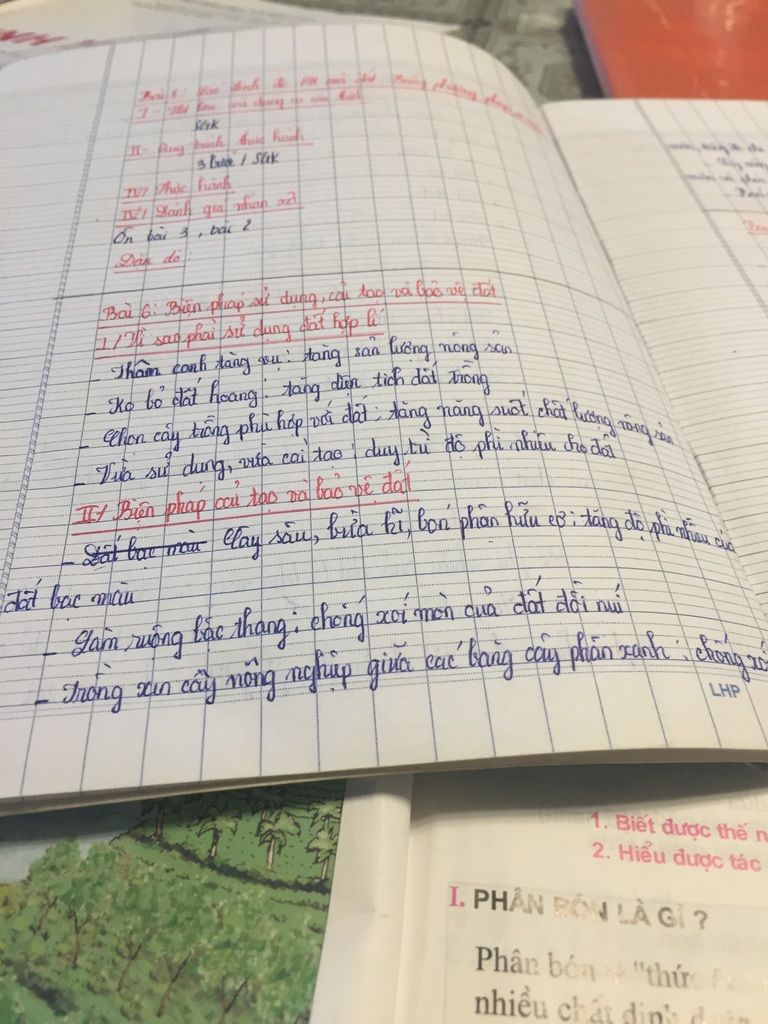 II- Quy trình thực hành
3 bước / SGK
III/ Thực hành
IV/ Đánh giá nhận xét
Ôn bài 3, bài 2
Dặn dò:
Bài 6: Biện pháp sử dụng, cải tạo và bảo vệ đất
I/ Vì sao phải sử dụng đất hợp lí
- Thâm canh tăng vụ: tăng sản lượng nông sản
- Ko bỏ đất hoang: tăng diện tích đất trồng
- Chọn cây trồng phù hợp với đất: tăng năng suất, chất lượng nông sản
- Vừa sử dụng, vừa cải tạo: duy trì độ phì nhiêu cho đất
II/ Biện pháp cải tạo và bảo vệ đất
- Đất bạc màu Cày sâu, bừa kĩ, bón phân hữu cơ: tăng độ phì nhiêu của
đất bạc màu
- Làm ruộng bậc thang: chống xói mòn của đất đồi núi
- Trồng xen cây nông nghiệp giữa các băng cây phân xanh: chống xó
LHP
1. Biết được thế n
2. Hiểu được tác
I. PHÂN BÓN LÀ GÌ ?
Phân bón "thức
nhiều chất dinh